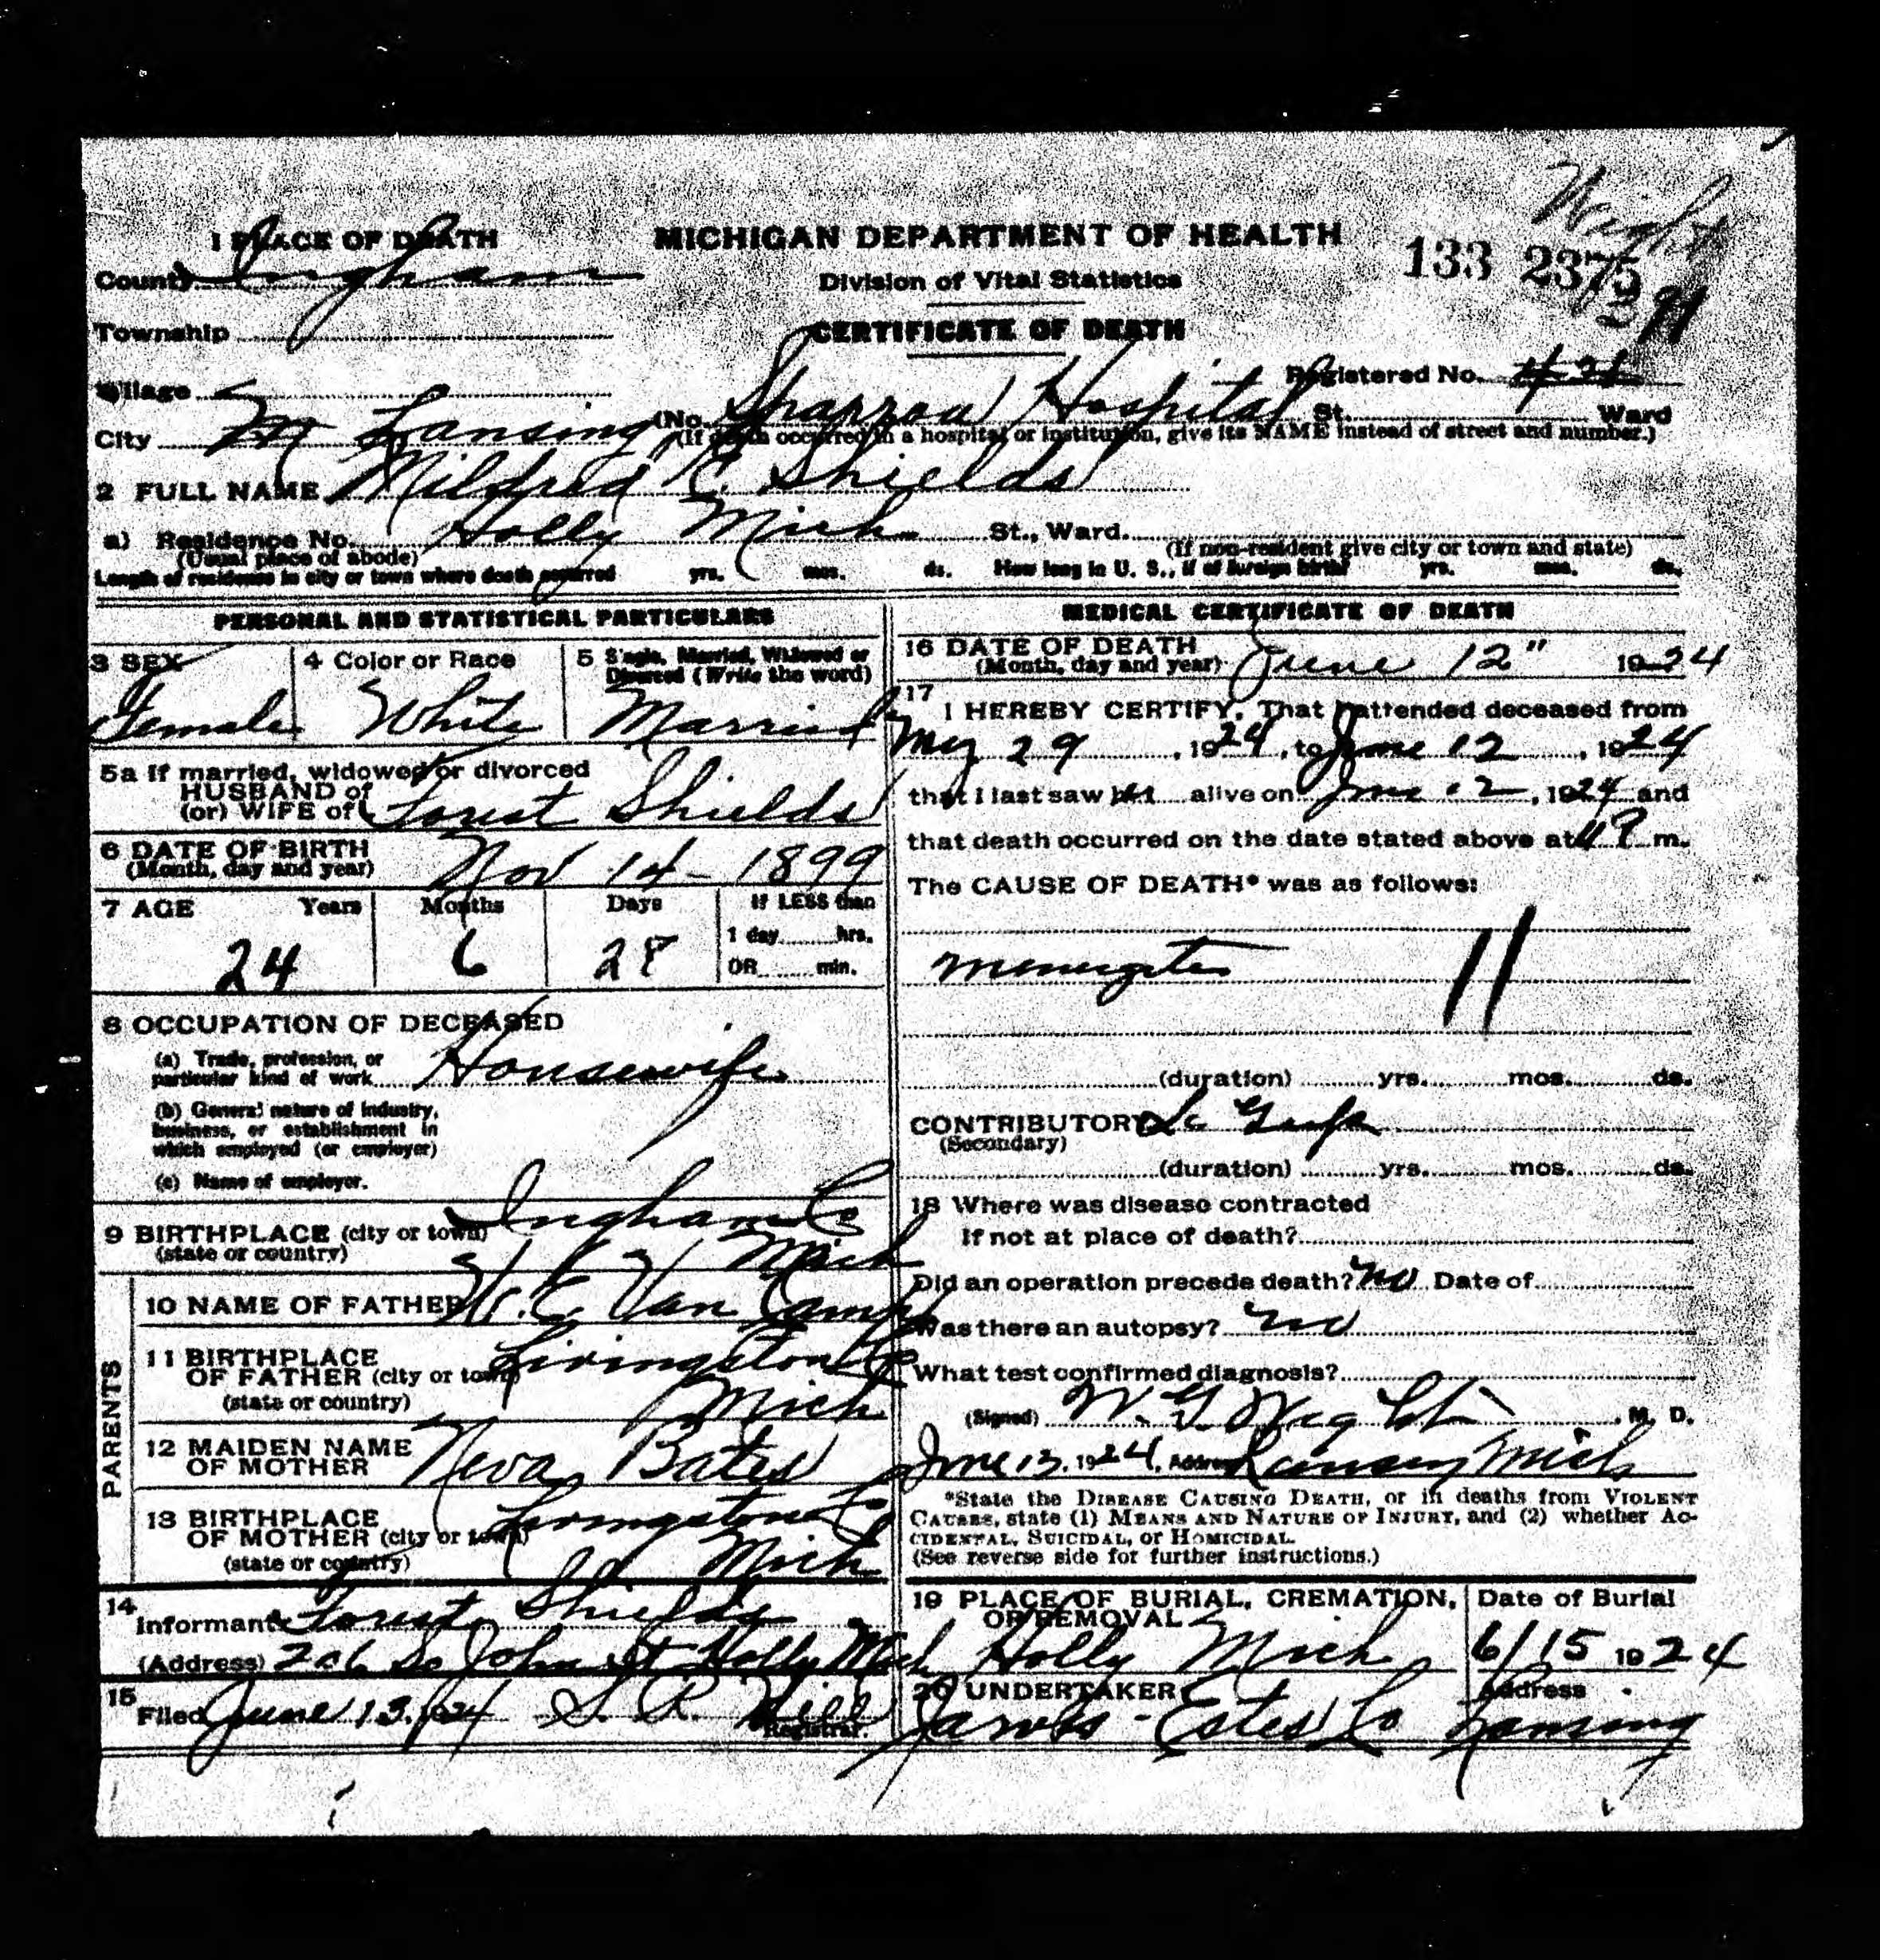 Wright
1 PLACE OF DEATH
MICHIGAN DEPARTMENT OF HEALTH
133 2375
County Ingham
Division of Vital Statistics
2 91
Township
CERTIFICATE OF DEATH
Village
Registered No.
City Lansing (No. Sparrow Hospital St. Ward
(If death occurred in a hospital or institution, give its NAME instead of street and number.)
2 FULL NAME Mildred E. Shields
a) Residence No. Holly Mich St., Ward.
(Usual place of abode) (If non-resident give city or town and state)
Length of residence in city or town where death occurred yrs. mos. ds. How long in U. S., if of foreign birth? yrs. mos. ds.
PERSONAL AND STATISTICAL PARTICULARS
3 SEX
Female
4 Color or Race
White
5 Single, Married, Widowed or
Divorced (Write the word)
Married
5a If married, widowed or divorced
HUSBAND of
(or) WIFE of Forest Shields
6 DATE OF BIRTH
(Month, day and year) Nov 14 - 1899
7 AGE Years Months Days If LESS than
1 day hrs.
24 6 28 OR min.
8 OCCUPATION OF DECEASED
(a) Trade, profession, or
particular kind of work Housewife
(b) General nature of industry,
business, or establishment in
which employed (or employer)
(c) Name of employer.
9 BIRTHPLACE (city or town) Ingham Co
(state or country) Mich
PARENTS
10 NAME OF FATHER Van Camp
11 BIRTHPLACE
OF FATHER (city or town) Livingston Co
(state or country) Mich
12 MAIDEN NAME
OF MOTHER Neva Bates
13 BIRTHPLACE
OF MOTHER (city or town) Livingston Co
(state or country) Mich
14
Informant Forest Shields
(Address) 206 So John St Holly Mich
15
Filed June 13, 1924 S. R. Hill
Registrar.
MEDICAL CERTIFICATE OF DEATH
16 DATE OF DEATH
(Month, day and year) June 12" 1924
17
I HEREBY CERTIFY, That I attended deceased from
May 29, 1924, to June 12, 1924
that I last saw her alive on June 12, 1924 and
that death occurred on the date stated above at m.
The CAUSE OF DEATH* was as follows:
meningitis 11
(duration) yrs. mos. ds.
CONTRIBUTORY La Grippe
(Secondary)
(duration) yrs. mos. ds.
18 Where was disease contracted
If not at place of death?
Did an operation precede death? no Date of
Was there an autopsy? no
What test confirmed diagnosis?
(Signed) W. G. Wight, M. D.
June 13, 1924, Address Lansing Mich
*State the DISEASE CAUSING DEATH, or in deaths from VIOLENT
CAUSES, state (1) MEANS AND NATURE OF INJURY, and (2) whether AC-
CIDENTAL, SUICIDAL, or HOMICIDAL.
(See reverse side for further instructions.)
19 PLACE OF BURIAL, CREMATION,
OR REMOVAL
Holly Mich
Date of Burial
6/15 1924
20 UNDERTAKER
Jarvis-Estes Co
Address
Lansing